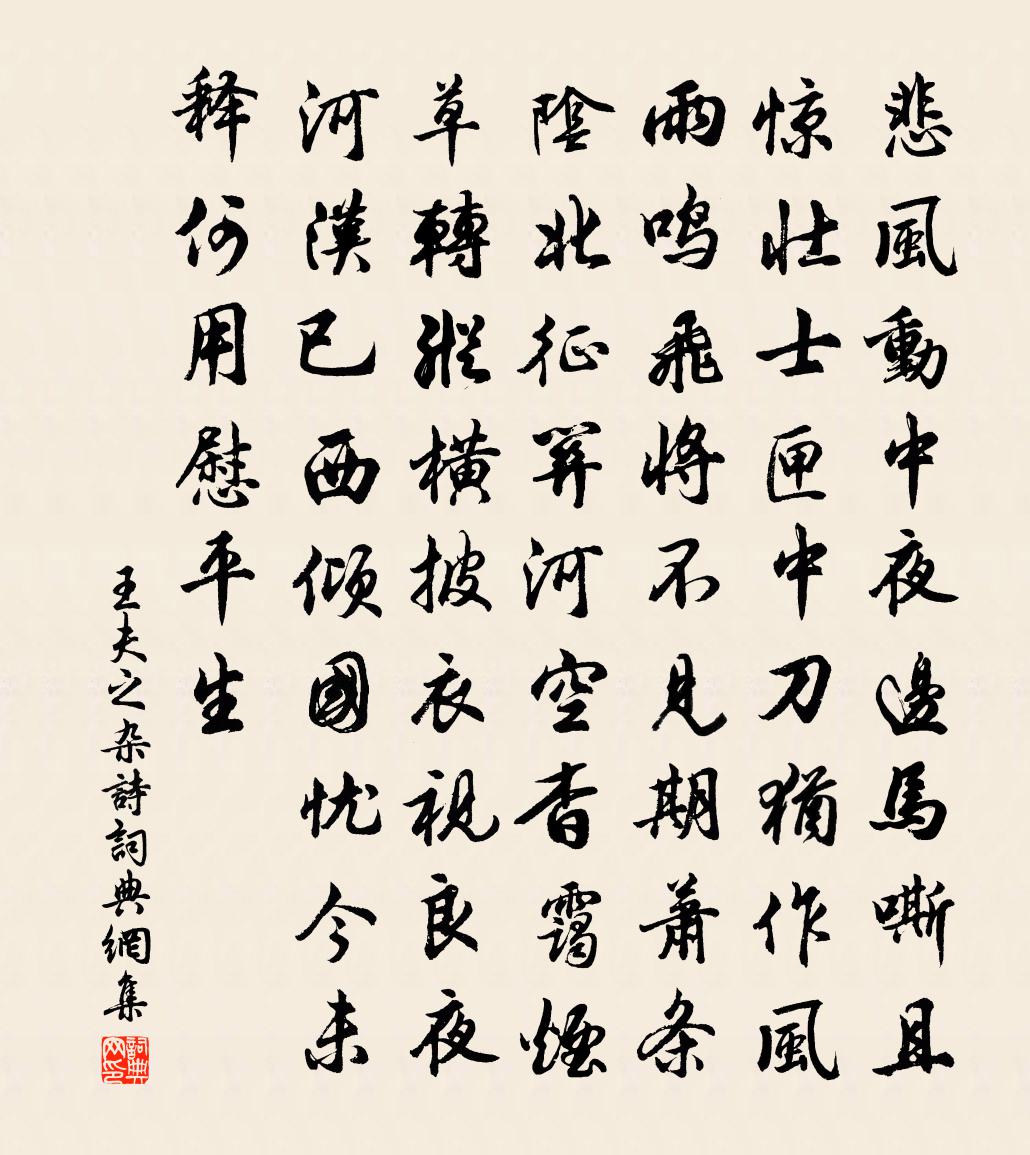 悲風動中夜邊馬嘶且
惊壮士匣中刀猶作風
雨鸣飛将不見期蕭条
陰北征関河空杳靄煙
草轉縱橫披衣視良夜
河漢已西傾國忧今未
释何用慰平生
王夫之杂詩詞典網集
詞典网印